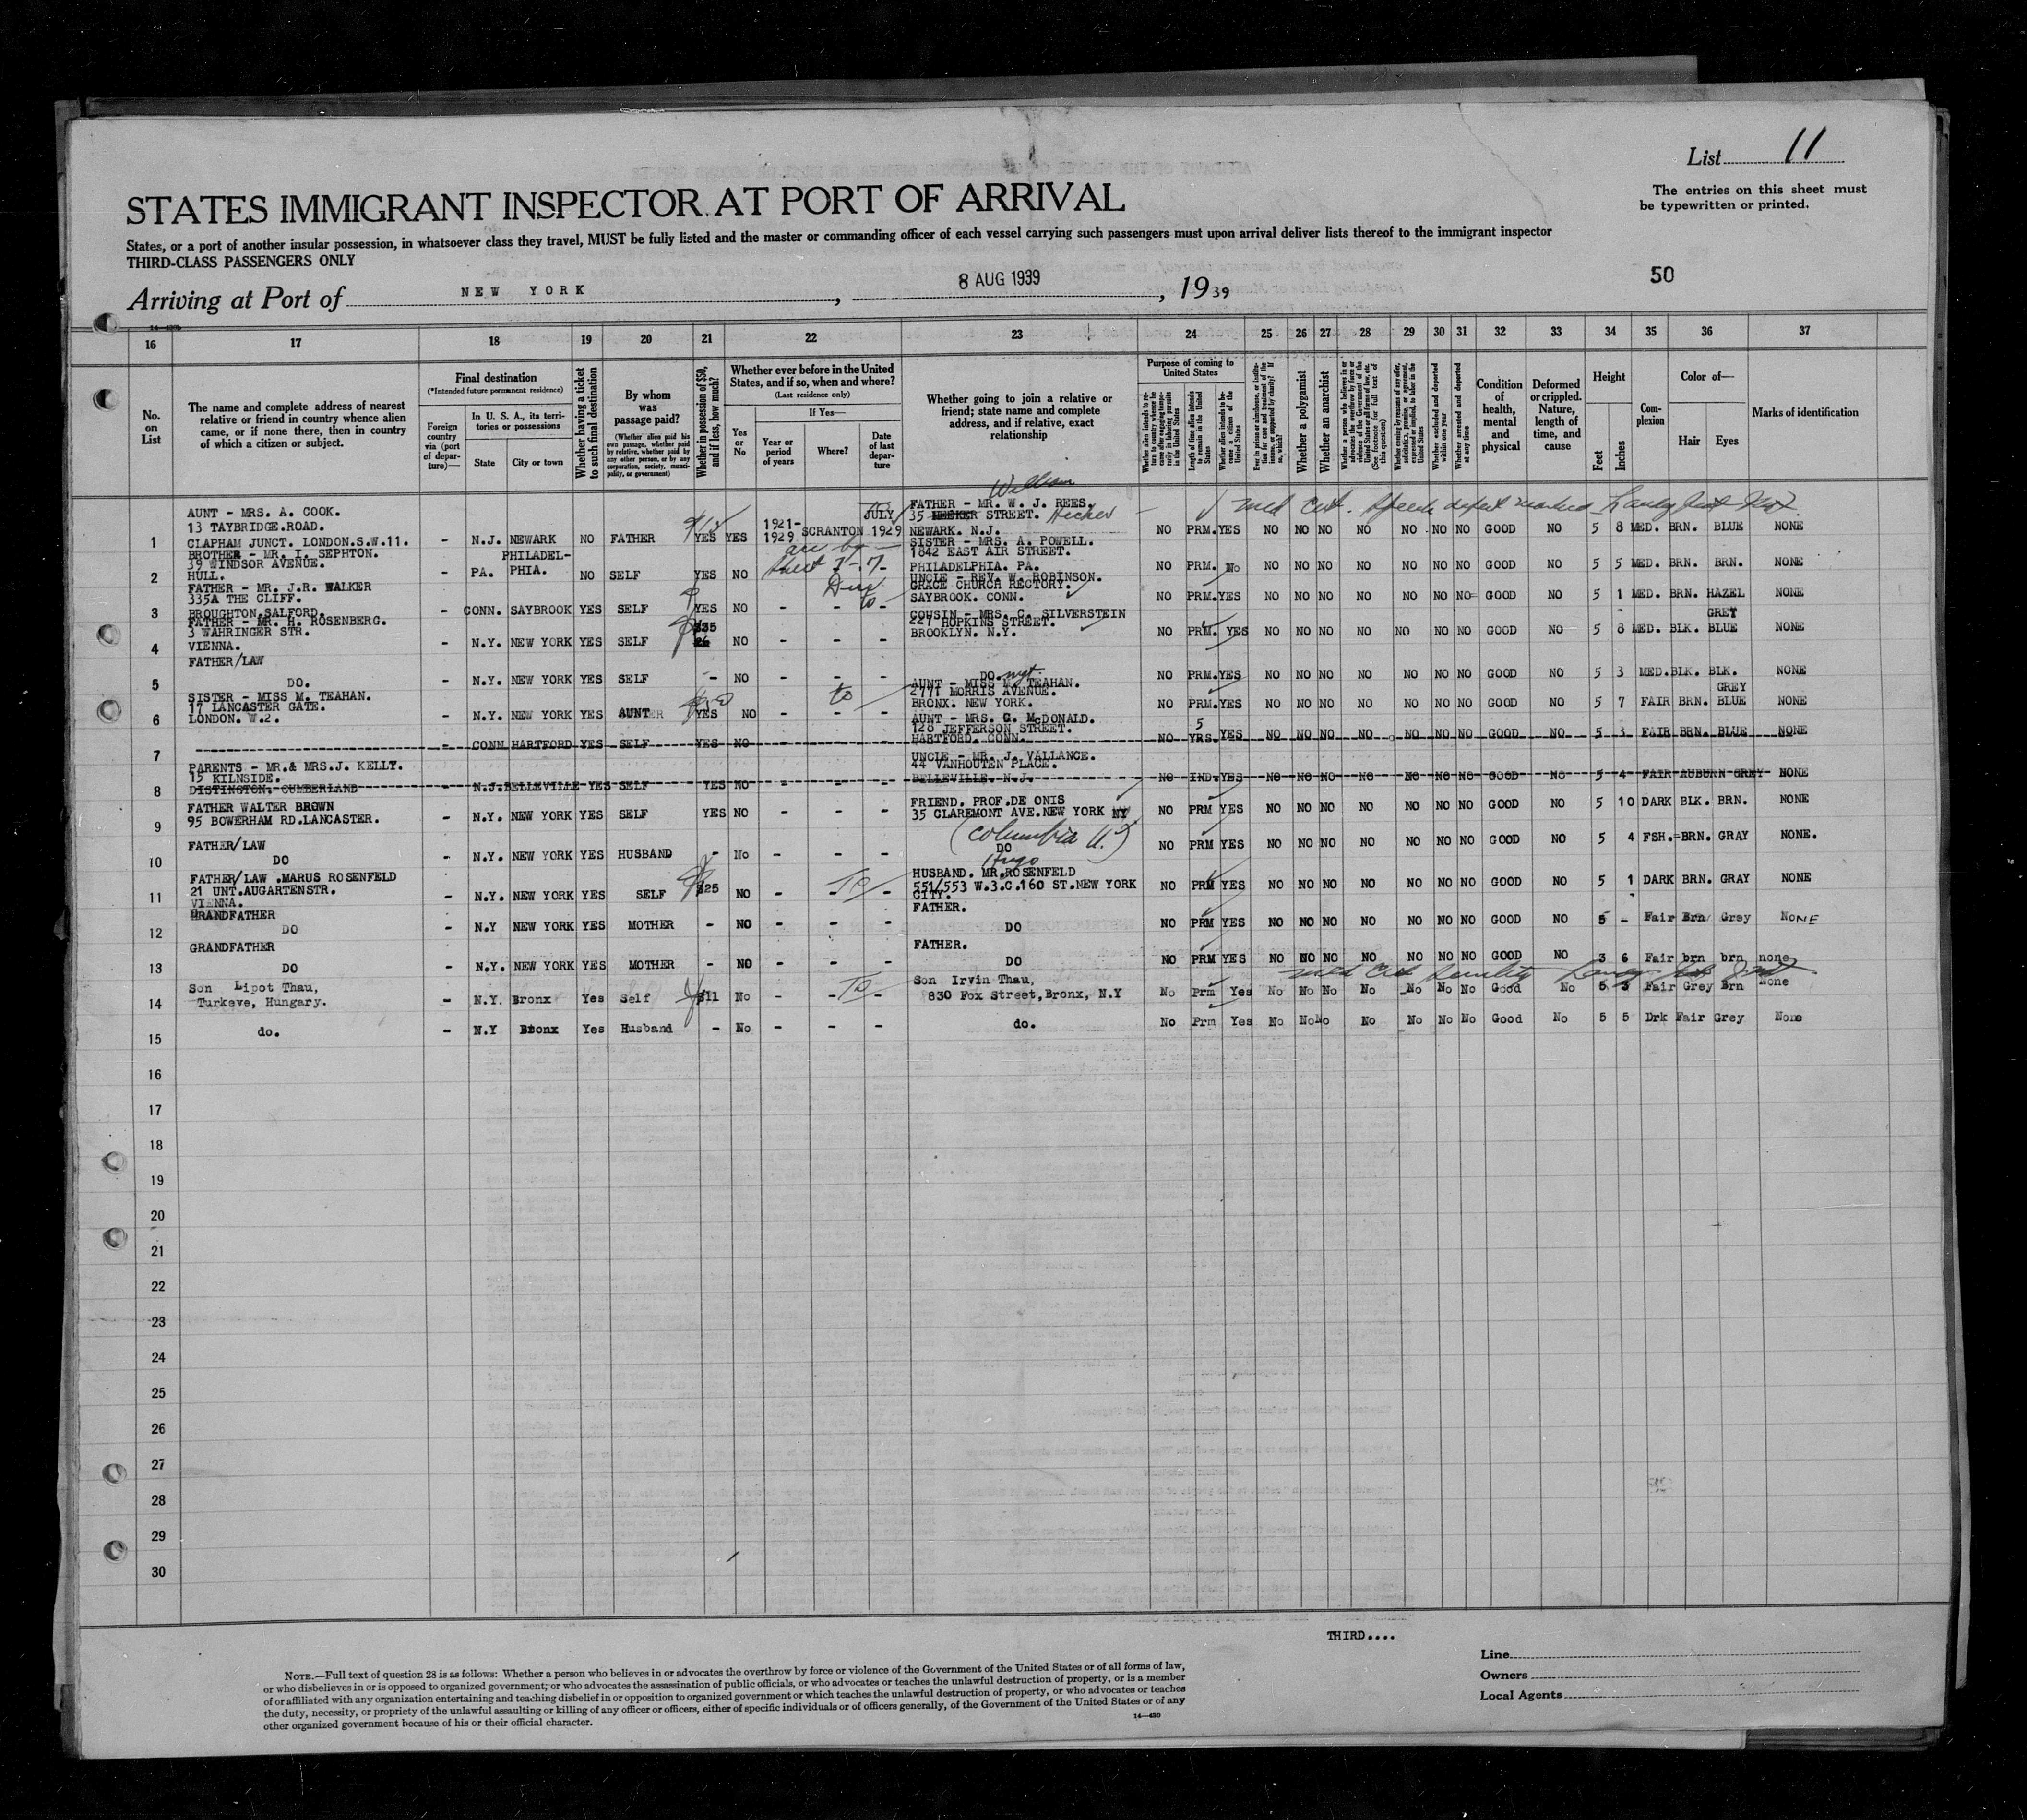 List 11
The entries on this sheet must
be typewritten or printed.
STATES IMMIGRANT INSPECTOR AT PORT OF ARRIVAL
States, or a port of another insular possession, in whatsoever class they travel, MUST be fully listed and the master or commanding officer of each vessel carrying such passengers must upon arrival deliver lists thereof to the immigrant inspector
THIRD-CLASS PASSENGERS ONLY
50
Arriving at Port of NEW YORK, 8 AUG 1939, 1939
16 17 18 19 20 21 22 23 24 25 26 27 28 29 30 31 32 33 34 35 36 37
No. on List
The name and complete address of nearest relative or friend in country whence alien came, or if none there, then in country of which a citizen or subject.
Final destination
(*Intended future permanent residence)
Foreign country via (port of departure)—
In U. S. A., its territories or possessions
State City or town
Whether having a ticket to such final destination
By whom was passage paid?
(Whether alien paid his own passage, whether paid by relative, whether paid by any other person, or by any corporation, society, municipality, or government)
Whether in possession of $50, and if less, how much?
Whether ever before in the United States, and if so, when and where?
(Last residence only)
Yes or No
If Yes—
Year or period of years
Where?
Date of last departure
Whether going to join a relative or friend; state name and complete address, and if relative, exact relationship
Purpose of coming to United States
Whether alien intends to return to country whence he came after engaging temporarily in laboring pursuits in the United States
Length of time alien intends to remain in the United States
Whether alien intends to become a citizen of the United States
Ever in prison or almshouse, or institution for care and treatment of the insane, or supported by charity? If so, which?
Whether a polygamist
Whether an anarchist
Whether a person who believes in or advocates the overthrow by force or violence of the Government of the United States or all forms of law, etc. (See footnote for full text of this question)
Whether coming by reasons of any offer, solicitation, promise, or agreement, expressed or implied, to labor in the United States
Whether excluded and deported within one year
Whether arrested and deported at any time
Condition of health, mental and physical
Deformed or crippled. Nature, length of time, and cause
Height
Feet Inches
Complexion
Color of—
Hair Eyes
Marks of identification
William
AUNT - MRS. A. COOK. FATHER - MR. W. J. REES. Med Cert. Speech defect marked
13 TAYBRIDGE.ROAD. JULY 35 HECKER STREET. Hecker
1 CLAPHAM JUNCT. LONDON.S.W.11. - N.J. NEWARK NO FATHER YES YES 1921-1929 SCRANTON 1929 NEWARK. N.J. NO PRM. YES NO NO NO NO NO NO NO GOOD NO 5 8 MED. BRN. BLUE NONE
BROTHER - MR. I. SEPHTON. SISTER - MRS. A. POWELL.
39 WINDSOR AVENUE. PHILADEL- 1842 EAST AIR STREET.
2 HULL. - PA. PHIA. NO SELF YES NO PHILADELPHIA. PA. NO PRM. No NO NO NO NO NO NO NO GOOD NO 5 5 MED. BRN. BRN. NONE
FATHER - MR. J.R. WALKER UNCLE - REV. W. ROBINSON.
335A THE CLIFF. GRACE CHURCH RECTORY.
3 BROUGHTON.SALFORD. - CONN. SAYBROOK YES SELF YES NO - - to - SAYBROOK. CONN. NO PRM. YES NO NO NO NO NO NO NO GOOD NO 5 1 MED. BRN. HAZEL NONE
FATHER - MR. H. ROSENBERG. COUSIN - MRS. C. SILVERSTEIN
3 WAHRINGER STR. $35 227 HOPKINS STREET. GREY
4 VIENNA. - N.Y. NEW YORK YES SELF NO - - - BROOKLYN. N.Y. NO PRM. YES NO NO NO NO NO NO NO GOOD NO 5 8 MED. BLK. BLUE NONE
FATHER/LAW
5 DO. - N.Y. NEW YORK YES SELF - NO - - - DO. NO PRM. YES NO NO NO NO NO NO NO GOOD NO 5 3 MED. BLK. BLK. NONE
SISTER - MISS M. TEAHAN. AUNT - MISS M. TEAHAN.
17 LANCASTER GATE. to 2771 MORRIS AVENUE. GREY
6 LONDON. W.2. - N.Y. NEW YORK YES AUNT YES NO - - - BRONX. NEW YORK. NO PRM. YES NO NO NO NO NO NO NO GOOD NO 5 7 FAIR BRN. BLUE NONE
AUNT - MRS. G. McDONALD.
128 JEFFERSON STREET. 5
7 - CONN HARTFORD YES SELF YES NO HARTFORD. CONN. NO YRS. YES NO NO NO NO NO NO NO GOOD NO 5 3 FAIR BRN. BLUE NONE
PARENTS - MR.& MRS.J. KELLY. UNCLE - MR. J. VALLANCE.
15 KILNSIDE. 44 VANHOUTEN PLACE.
8 DISTINGTON. CUMBERLAND - N.J. BELLEVILLE YES SELF YES NO - - - BELLEVILLE. N.J. NO IND. YES NO NO NO NO NO NO NO GOOD NO 5 4 FAIR AUBURN GREY NONE
FATHER WALTER BROWN FRIEND. PROF.DE ONIS
9 95 BOWERHAM RD.LANCASTER. - N.Y. NEW YORK YES SELF YES NO - - - 35 CLAREMONT AVE.NEW YORK NY NO PRM YES NO NO NO NO NO NO NO GOOD NO 5 10 DARK BLK. BRN. NONE
(Columbia U.)
FATHER/LAW
10 DO - N.Y. NEW YORK YES HUSBAND - No - - - DO NO PRM YES NO NO NO NO NO NO NO GOOD NO 5 4 FSH. BRN. GRAY NONE.
Hugo
FATHER/LAW .MARUS ROSENFELD HUSBAND. MR.ROSENFELD
21 UNT.AUGARTENSTR. 551/553 W.3.C.160 ST.NEW YORK
11 VIENNA. - N.Y. NEW YORK YES SELF $25 NO - To - CITY. NO PRM YES NO NO NO NO NO NO NO GOOD NO 5 1 DARK BRN. GRAY NONE
GRANDFATHER FATHER.
12 DO - N.Y NEW YORK YES MOTHER - NO - - - DO NO PRM YES NO NO NO NO NO NO NO GOOD NO 5 - Fair Brn Grey NONE
GRANDFATHER FATHER.
13 DO - N.Y. NEW YORK YES MOTHER - NO - - - DO NO PRM YES NO NO NO NO NO NO NO GOOD NO 3 6 Fair brn brn none
Med Cert Senility
Son Lipot Thau, Son Irvin Thau,
14 Turkeve, Hungary. - N.Y. Bronx Yes Self $11 No - - To - 830 Fox Street,Bronx, N.Y No Prm Yes No No No No No No No Good No 5 3 Fair Grey Brn None
15 do. - N.Y Bronx Yes Husband - No - - - do. No Prm Yes No No No No No No No Good No 5 5 Drk Fair Grey None
16
17
18
19
20
21
22
23
24
25
26
27
28
29
30
THIRD....
Line
Owners
Local Agents
NOTE.—Full text of question 28 is as follows: Whether a person who believes in or advocates the overthrow by force or violence of the Government of the United States or of all forms of law,
or who disbelieves in or is opposed to organized government; or who advocates the assassination of public officials, or who advocates or teaches the unlawful destruction of property, or is a member
of or affiliated with any organization entertaining and teaching disbelief in or opposition to organized government or which teaches the unlawful destruction of property, or who advocates or teaches
the duty, necessity, or propriety of the unlawful assaulting or killing of any officer or officers, either of specific individuals or of officers generally, of the Government of the United States or of any
other organized government because of his or their official character.
14—430